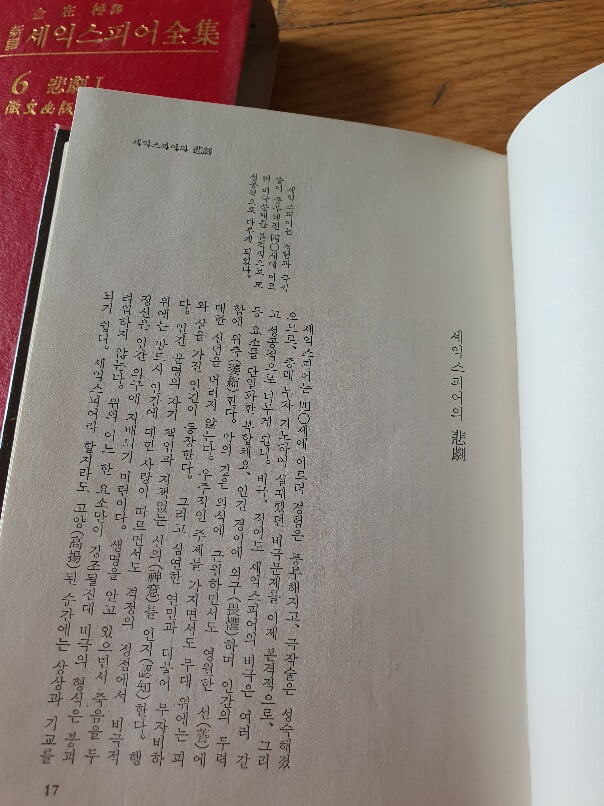 金在枏譯
新譯 셰익스피어全集
6 悲劇 I
徽文出版
셰익스피어의 悲劇
셰익스피어의 悲劇
셰익스피어는 경험과 극작
술이 풍부해진 四〇세에 이르
러 비극문제를 본격적으로 또
성공적으로 다루게 되었다.
셰익스피어는 四〇세에 이르러 경험은 풍부해지고, 극작술은 성숙해졌
으므로, 종래 누차 기도하여 실패했던 비극문제를 이제 본격적으로, 그리
고 성공적으로 다루게 된다. 비극, 적어도 셰익스피어의 비극은 여러 갈
등 요소를 단일화한 복합체요, 인간 경이에 외구(畏懼)하며 인간의 무력
함에 위축(萎縮)한다. 악의 깊은 의식에 근원하면서도 영원한 선(善)에
대한 신념은 버리지 않는다. 우주적인 주제를 가지면서도 무대 위에는 피
와 살을 가진 인간이 등장한다. 그리고 심연한 연민과 더불어 무자비하
다. 인간 운명의 자기 책임과 지향없는 신의(神意)를 인지(認知)한다. 행
위에는 반드시 인간에 대한 사랑이 따르면서도 격정의 정점에서 비극적
정신은 인간 의구에 지배되기 마련이다. 생명을 안고 있으면서 죽음을 두
려워하지 않는다. 위의 어느 한 요소만이 강조될진대 비극의 형식은 붕괴
되기 쉽다. 셰익스피어라 할지라도 고양(高揚)된 순간에는 상상과 기교를
17